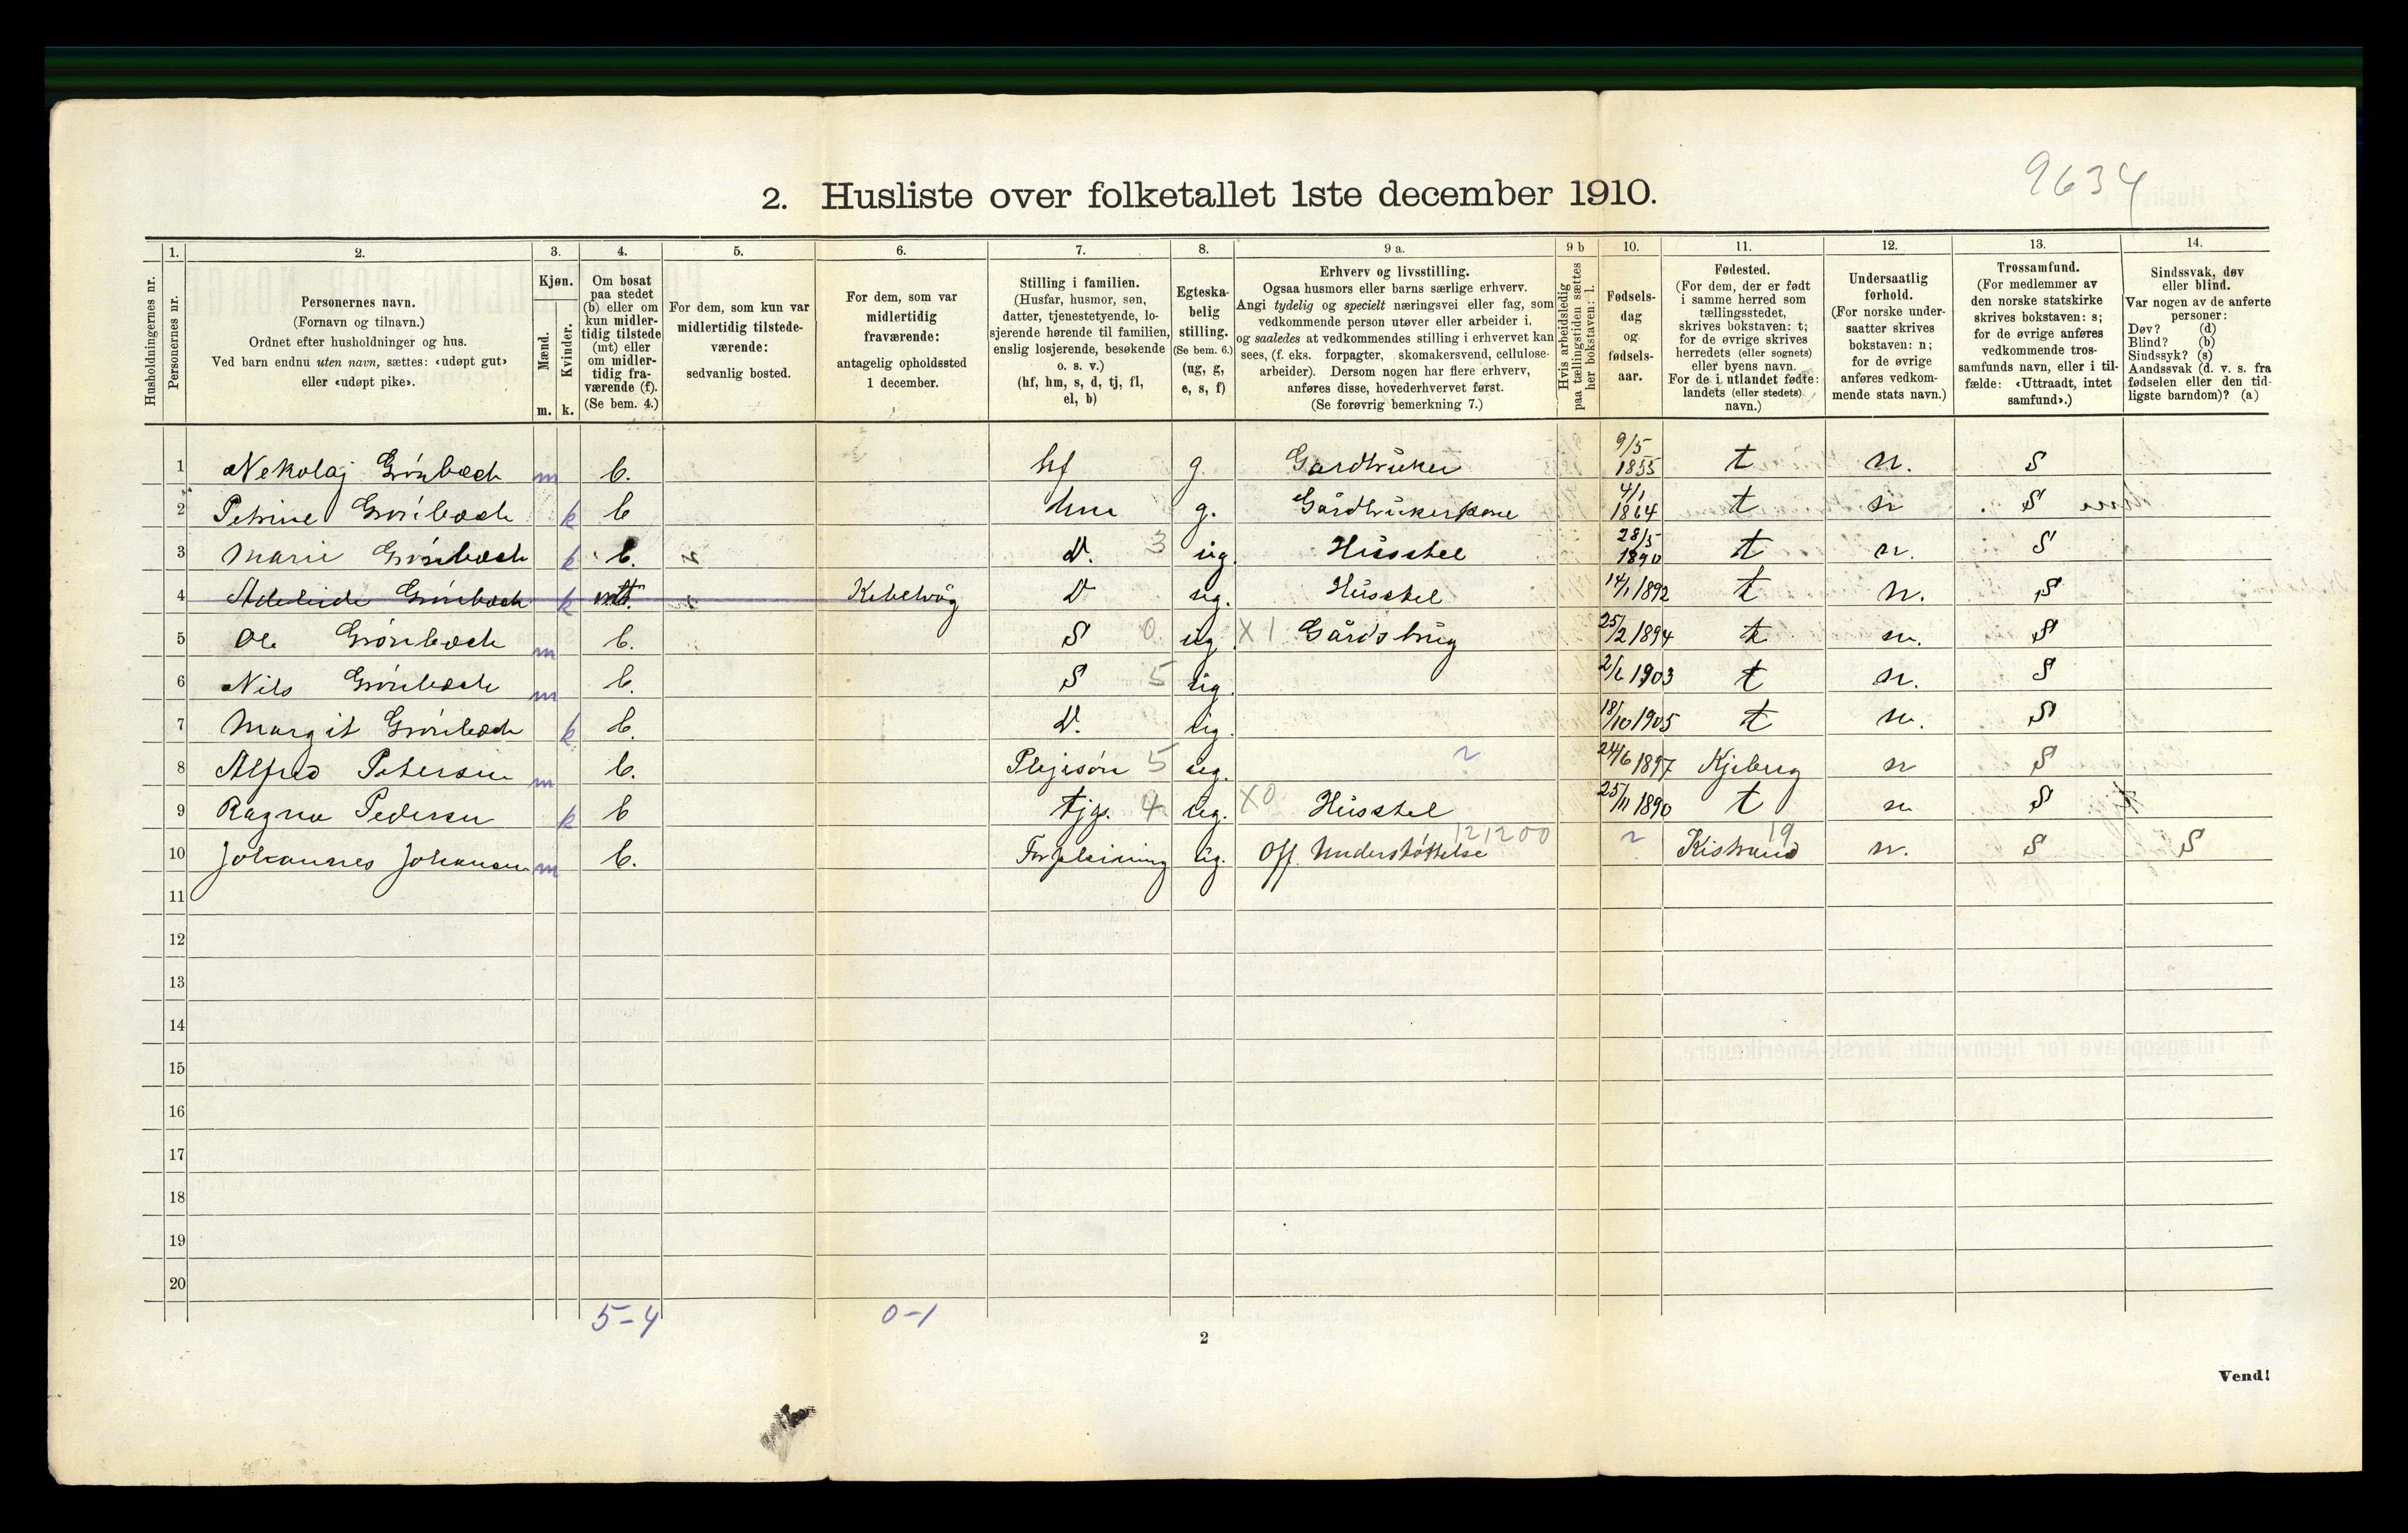 9634
2. Husliste over folketallet 1ste december 1910.
Husholdningernes nr.
1.
Personernes nr.
2.
Personernes navn.
(Fornavn og tilnavn.)
Ordnet efter husholdninger og hus.
Ved barn endnu uten navn, sættes: «udøpt gut»
eller «udøpt pike».
3.
Kjøn.
Mænd.
Kvinder.
m. k.
4.
Om bosat
paa stedet
(b) eller om
kun midler-
tidig tilstede
(mt) eller
om midler-
tidig fra-
værende (f).
(Se bem. 4.)
5.
For dem, som kun var
midlertidig tilstede-
værende:
sedvanlig bosted.
6.
For dem, som var
midlertidig
fraværende:
antagelig opholdssted
1 december.
7.
Stilling i familien.
(Husfar, husmor, søn,
datter, tjenestetyende, lo-
sjerende hørende til familien,
enslig losjerende, besøkende
o. s. v.)
(hf, hm, s, d, tj, fl,
el, b)
8.
Egteska-
belig
stilling.
(Se bem. 6.)
(ug, g,
e, s, f)
9 a.
Erhverv og livsstilling.
Ogsaa husmors eller barns særlige erhverv.
Angi tydelig og specielt næringsvei eller fag, som
vedkommende person utøver eller arbeider i,
og saaledes at vedkommendes stilling i erhvervet kan
sees, (f. eks. forpagter, skomakersvend, cellulose-
arbeider). Dersom nogen har flere erhverv,
anføres disse, hovederhvervet først.
(Se forøvrig bemerkning 7.)
9 b
Hvis arbeidsledig
paa tællingstiden sættes
her bokstaven: l.
10.
Fødsels-
dag
og
fødsels-
aar.
11.
Fødested.
(For dem, der er født
i samme herred som
tællingsstedet,
skrives bokstaven: t;
for de øvrige skrives
herredets (eller sognets)
eller byens navn.
For de i utlandet fødte:
landets (eller stedets)
navn.)
12.
Undersaatlig
forhold.
(For norske under-
saatter skrives
bokstaven: n;
for de øvrige
anføres vedkom-
mende stats navn.)
13.
Trossamfund.
(For medlemmer av
den norske statskirke
skrives bokstaven: s;
for de øvrige anføres
vedkommende tros-
samfunds navn, eller i til-
fælde: «Uttraadt, intet
samfund».)
14.
Sindssvak, døv
eller blind.
Var nogen av de anførte
personer:
Døv? (d)
Blind? (b)
Sindssyk? (s)
Aandssvak (d. v. s. fra
fødselen eller den tid-
ligste barndom)? (a)
1 Nekolaj Grönbæch m b. hf g Gardbrüker 9/5 1855 t n. S
2 Petrine Grönbæch k b hm g. Gårdbrükerkone 4/1 1864 t n S
3 Marie Grönbæch k b. D. 3 üg. Hüsstel 28/5 1890 t n. S
4 Grönbæch k Kebelvåg D üg. Hüsstel 14/1 1892 t n. S
5 Ole Grönbæch m b. S 0 üg. X 1 Gårdsbrüg 25/2 1894 t n. S
6 Nils Grönbæch m b. S 5 üg. 2/6 1903 t n. S
7 Margit Grönbæch k b. D. üg. 18/10 1905 t n. S
8 Alfred Petersen m b. Plejesön 5 üg. 24/6 1897 Kjeberg n S
9 Ragna Pedersen k b tje. 4 üg. X0 Hüsstel 25/11 1890 t n S
10 Johannes Johansen m b. Forpleining üg. Off. Understöttelse 121200 Kistrand 19 n. S S
11
12
13
14
15
16
17
18
19
20
5-4 0-1
2
Vend!